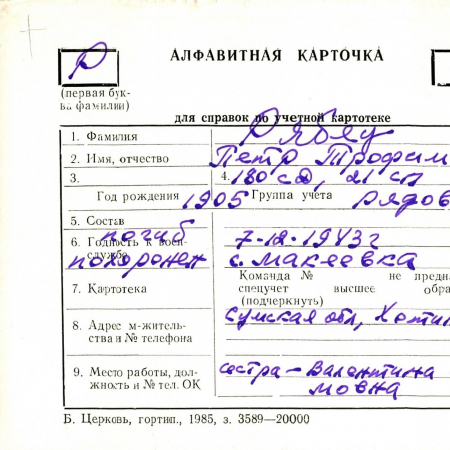 Р
АЛФАВИТНАЯ КАРТОЧКА
(первая бук-
ва фамилии)
для справок по учетной картотеке
1. Фамилия Рябец
2. Имя, отчество Петр Трофим
3. 4. 180 сд, 21 сп
Год рождения 1905 Группа учета рядов
5. Состав
погиб
6. Годность к воен- 7-12-1943г
службе похоронен с. Макеевка
Команда № не предна
7. Картотека спецучет высшее обра
(подчеркнуть)
8. Адрес м-житель- Сумская обл, Хотин
ства и № телефона
9. Место работы, дол- сестра – Валентина
жность и № тел. ОК мовна
Б. Церковь, гортип., 1985, з. 3589—20000